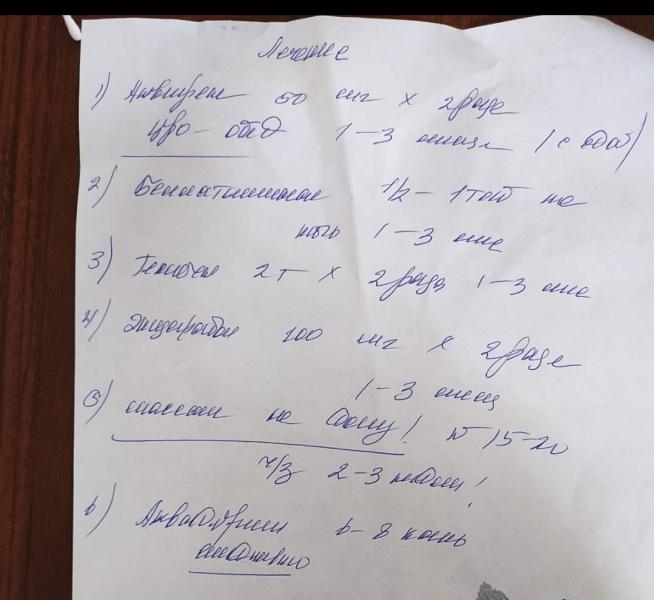 Лечение
1) 50 мг х 2 раза
утро - обед 1-3 месяца (с едой)
2) 1/2 - 1 таб на
ночь 1-3 мес
3) 2 т х 2 раза 1-3 мес
4) 100 мг х 2 раза
1-3 месяц
5) массаж на дому! N 15-20
ч/з 2-3 недели!
6) Аквадетрим 6-8 капель
ежедневно